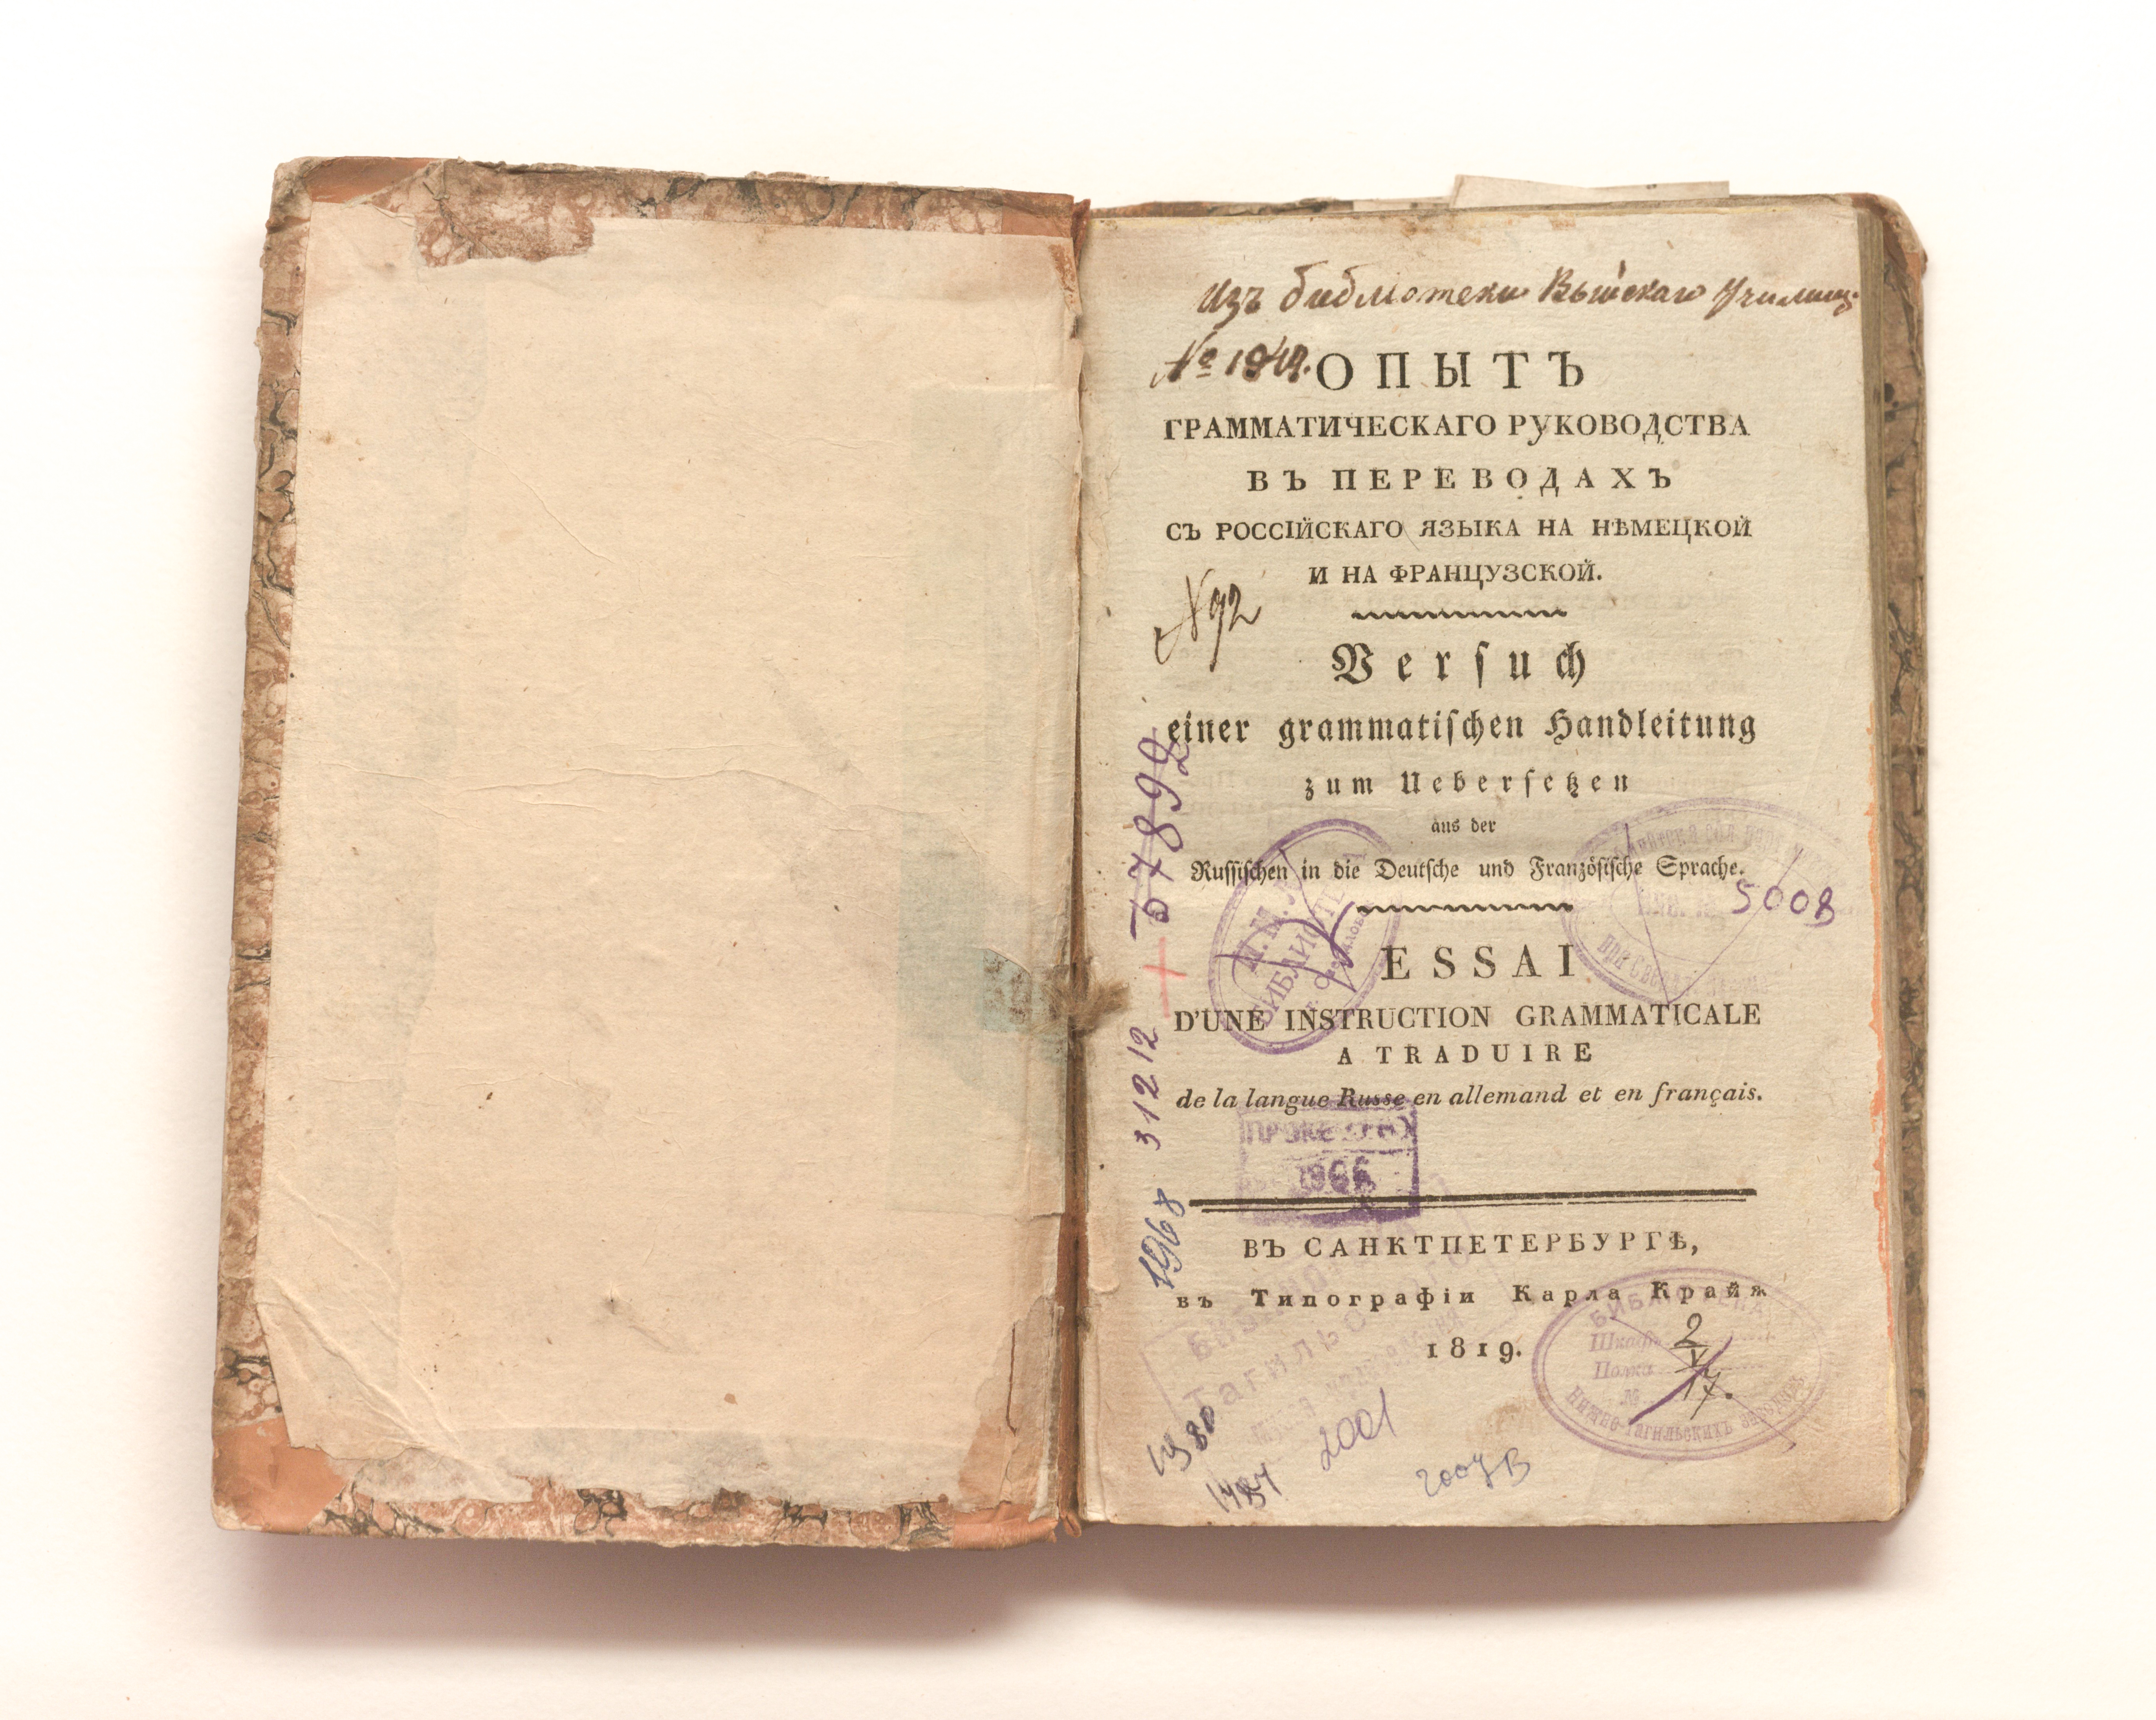 Изъ библіотеки Выйскаго Училищ.
№
ОПЫТЪ
ГРАММАТИЧЕСКАГО РУКОВОДСТВА
ВЪ ПЕРЕВОДАХЪ
СЪ РОССІЙСКАГО ЯЗЫКА НА НѢМЕЦКОЙ
И НА ФРАНЦУЗСКОЙ.
N 92
Versuch
einer grammatischen Handleitung
zum Uebersetzen
aus der
Russischen in die Deutsche und Französische Sprache.
57892
5008
БИБЛИОТЕКА
ESSAI
D'UNE INSTRUCTION GRAMMATICALE
A TRADUIRE
de la langue Russe en allemand et en français.
31212
1966
1968
ВЪ САНКТПЕТЕРБУРГѢ,
въ Типографіи Карла Крайя
1819.
БИБЛІОТЕКА
Шкафъ
Полка
№
2
V
17.
Нижне-Тагильскихъ заводовъ
1980
2001